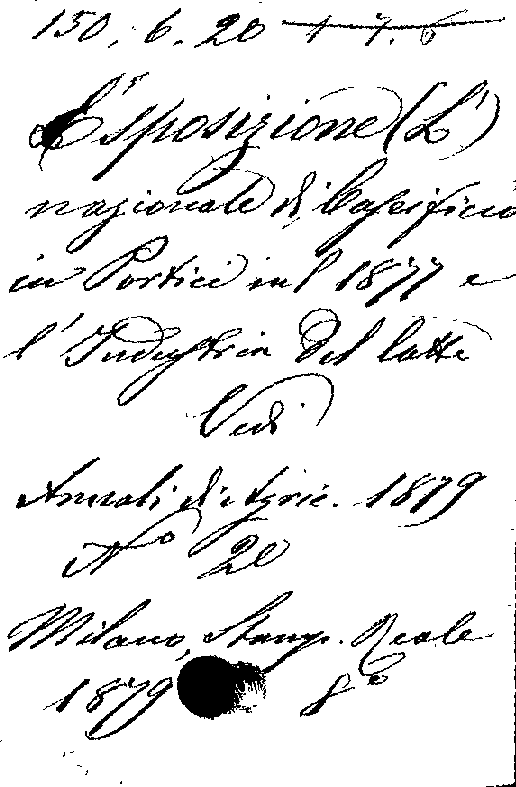 150. 6. 20 + 7. 6
Esposizione (L')
nazionale di Caseificio
in Portici nel 1877 e
l'Industria del latte
Vedi
Annali di Agric. 1879
N° 20
Milano, Stamp. Reale
1879 8°